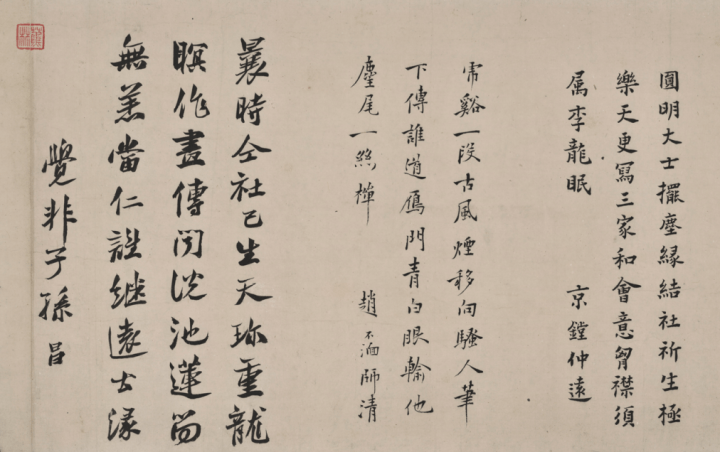 圓明大士擺塵緣結社祈生極
樂天更寫三家和會意胷襟須
属李龍眠　京鏜仲遠
常谿一段古風煙移向騷人筆
下傳誰道鴈門青白眼輸他
麈尾一絲禪　趙不迺師清
曩時仝社已生天珎重龍
瞑作畫傳閱説池蓮尚
無恙當仁誰継遠公縁
覺非子孫昌